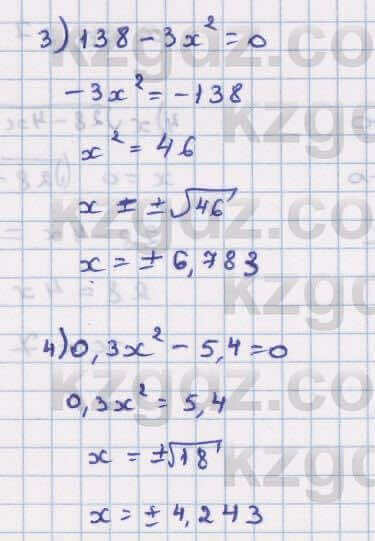 3) 138 - 3x² = 0
-3x² = -138
x² = 46
x = ± √46
x = ± 6,783
4) 0,3x² - 5,4 = 0
0,3x² = 5,4
x = ±√18
x = ± 4,243